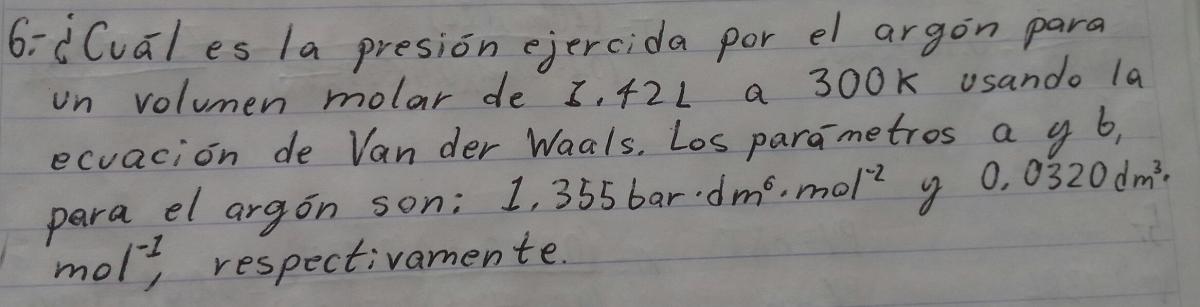 6.- ¿Cuál es la presión ejercida por el argón para
un volumen molar de 1.42L a 300K usando la
ecuación de Van der Waals. Los parámetros a y b,
para el argón son: 1.355bar·dm⁶·mol⁻² y 0.0320dm³·
mol⁻¹, respectivamente.